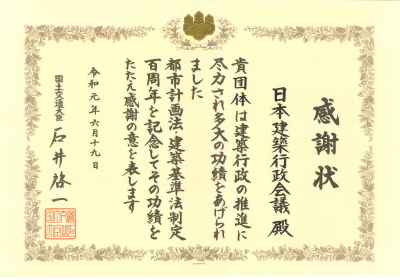 感謝状
日本建築行政会議 殿
貴団体は建築行政の推進に
尽力され多大の功績をあげられ
ました
都市計画法・建築基準法制定
百周年を記念してその功績を
たたえ感謝の意を表します
令和元年六月十九日
国土交通大臣 石井啓一